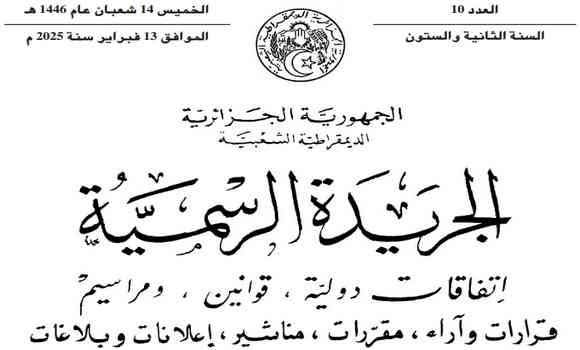 العدد 10
الخميس 14 شعبان عام 1446 هـ
السنة الثانية والستون
الموافق 13 فبراير سنة 2025 م
الجمهورية الجزائرية
الديمقراطية الشعبية
الجريدة الرسمية
إتفاقات دولية ، قوانين ، ومراسيم
قرارات وآراء ، مقررات ، مناشير ، إعلانات وبلاغات